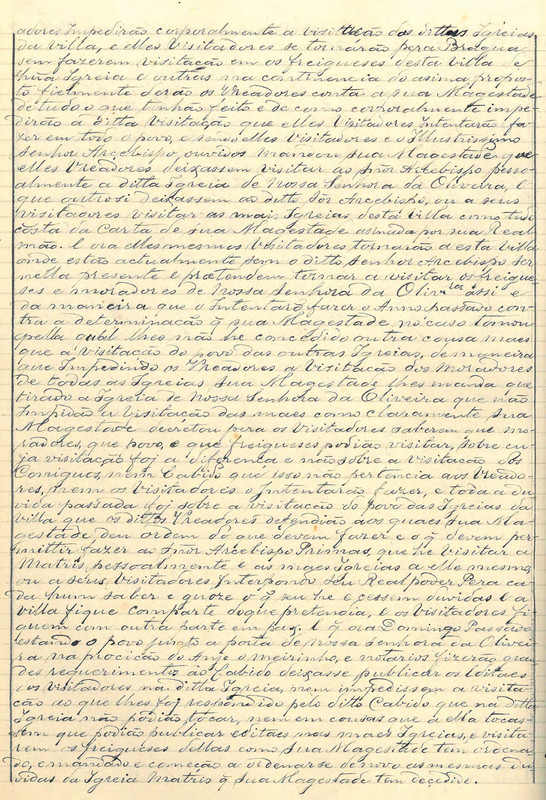 adores Impedirão corporalmente a visitação das dittas Igreias
da villa, e elles Visitadores se tornarão pera Bragua
sem fazerem visitação em os freigueses desta villa e
huma Igreia e outras na continencia do asima propos-
to fielmente derão os Vreadores conta a sua Magestade
de tudo o que tinhão feito e de como corporalmente impe-
dirão a ditta Visitação que elles Visitadores Intentarão fa-
zer em todo o povo, e sendo elles Visitadores e o Illustrissimo
Senhor Arcebispo, ouvidos mandou Sua Magestade que
elles Vreadores deixassem visitar ao Snor Arcebispo pesso-
almente a ditta Igreia de Nossa Senhora da Oliveira, E
que outro si deixassem ao ditto Sor Arcebispo, ou a seus
visitadores visitar as mais Igreias desta Villa como tudo
costa da Carta de Sua Magestade asinada por sua Real
mão. E ora elles mesmos Visitadores tornarão a esta Villa
onde estão actualmente sem o ditto Senhor Arcebispo ser
nella presente e pretendem tornar a visitar os freigue-
ses e moradores de Nossa Senhora da Olivra assi e
da maneira que o Intentarão fazer o Anno passado con-
tra a determinação q̃ sua Magestade no caso tomou
pella qual lhes não he concedido outra cousa mais
que a visitação do povo das outras Igreias, de maneira
que Impedindo os Vreadores a Visitação dos Moradores
de todas as Igreias Sua Magestade lhes manda que
tirado a Igreia de Nossa Senhora da Oliveira que não
Impidão a Visitação das maes como claramente Sua
Magestade decretou pera os Visitadores saberem que mo-
radores, que povo, e que freigueses podião visitar, sobre cu-
ja visitação foj a diferença e não sobre a visitação dos
Coniguos, nem Cabido que isso não pertencia aos Vreado-
res, nem os Visitadores o Intentarão fazer, e toda a du-
vida passada foj sobre a visitação do povo das Igreias da
villa que os dittos Vreadores defendião aos quaes Sua Ma-
gestade, deu ordem do que devem fazer e o q̃ devem per-
mittir fazer ao Snor Arcebispo Primas, que he Visitar a
Matris, pessoalmente e as mais Igreias a elle mesmo
ou a seus, Visitadores Interpondo seu Real poder Pera ca-
da hum saber e o q̃ seu he e cessem duvidas E a
villa fique com parte do que pretendia, E os Visitadores fi-
quem com outra parte em paz. E q̃ ora Domingo Passado
estando o povo junto a porta de nossa Senhora da Olivei-
ra na procição do Anjo o meirinho, e notarios fizerão gran-
des requerimentos ao Cabido deixasse publicar os Editaes
dos visitadores na ditta Igreia, nem impedissem a visita-
ção ao que lhes foj respondido pelo ditto Cabido que na ditta
Igreia não podião tocar, nem em cousas que a ella tocas-
sem que podião publicar editaes nas maes Igreias, e visita-
rem os freigueses dellas como Sua Magestade tem ordena-
do, e mandado e começão a ordenarse de novo as mesmas du-
vidas da Igreia Matris q̃ Sua Magestade tem decedido.